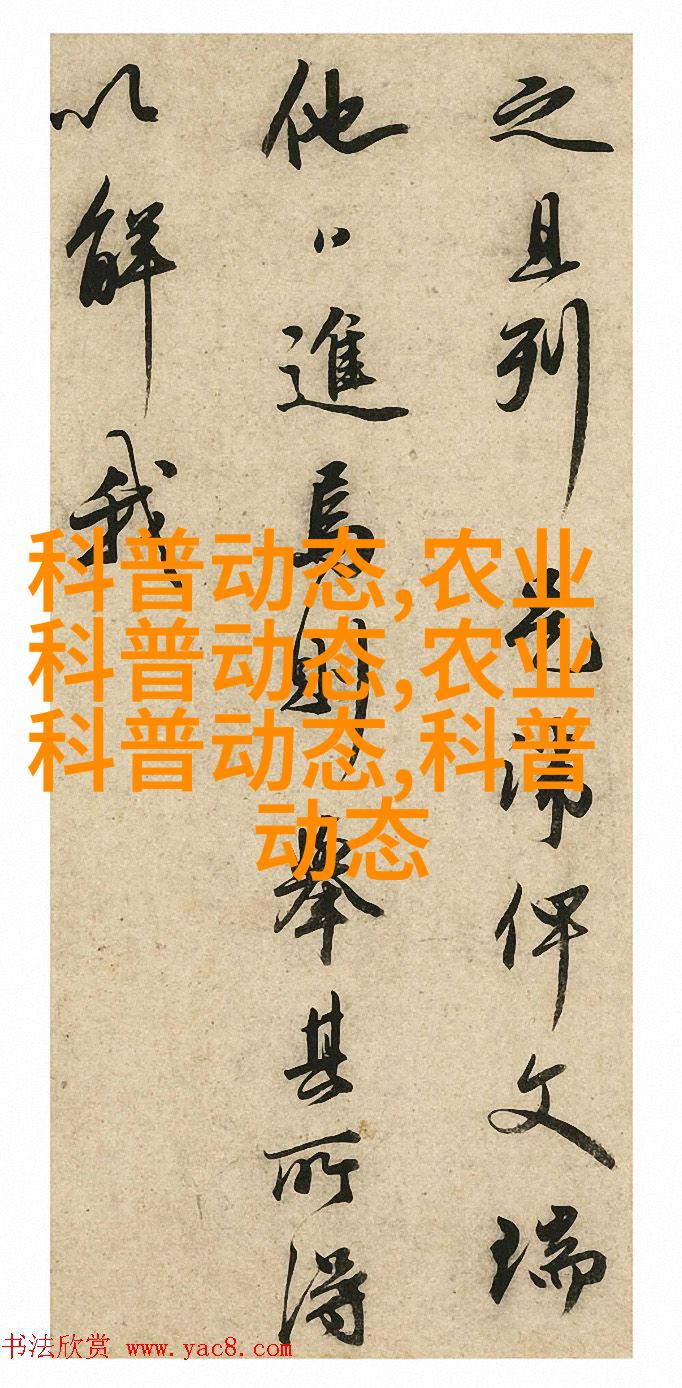 之且列俾文瑞
他進焉則舉其所得
以解我
科普动态,农业
科普动态,农业
科普动态,科普
动态
书法欣赏 www.yac8.com